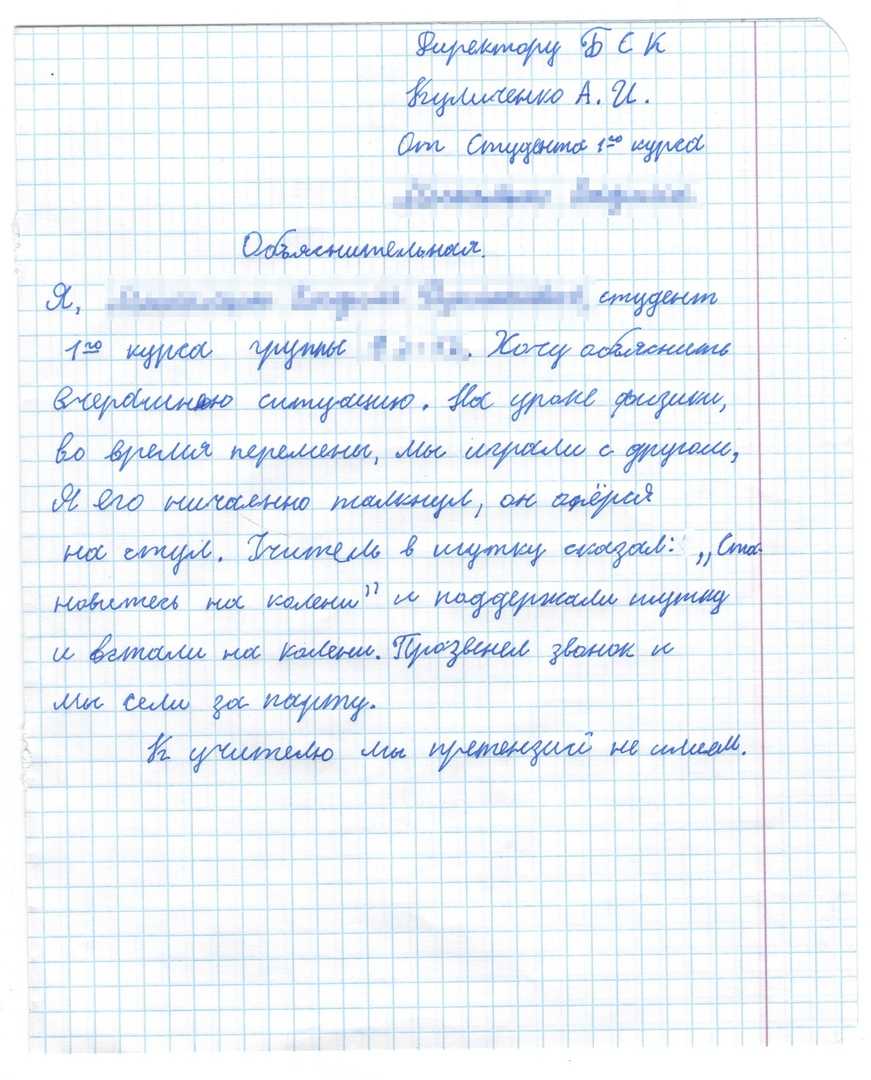 Директору Б С К
Куличенко А. И.
От Студента 1го курса
Объяснительная.
Я, студент
1го курса группы . Хочу объяснить
вчерашнюю ситуацию. На уроке физики,
во время перемены, мы играли с другом,
Я его ничаенно толкнул, он опёрся
на стул. Учитель в шутку сказал: „Ста-
новитесь на колени" и поддержали шутку
и встали на колени. Прозвенел звонок и
мы сели за парту.
К учителю мы претензий не имеем.